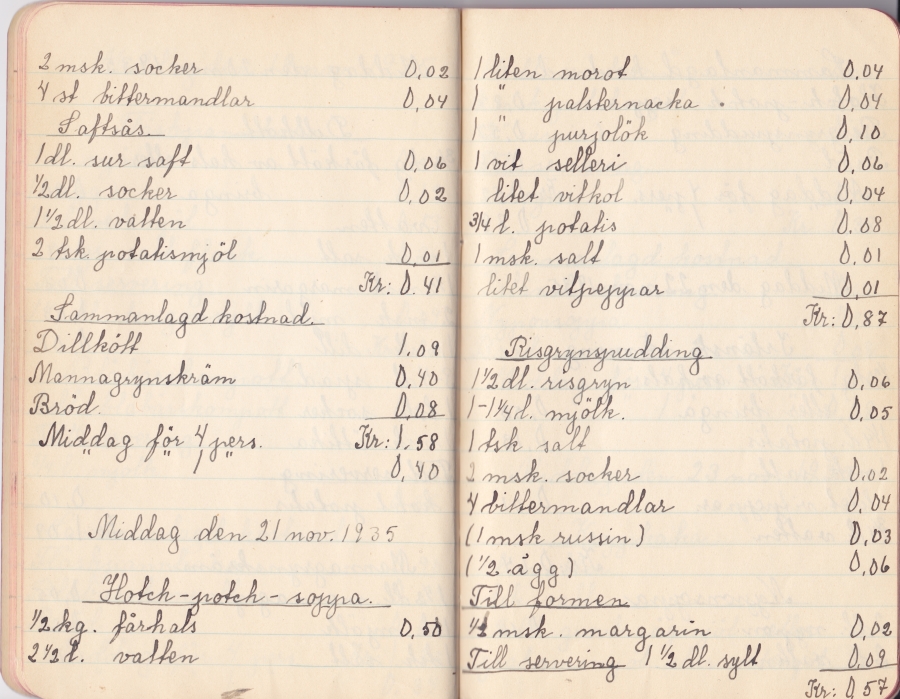 2 msk. socker 0,02
4 st bittermandlar 0,04
Saftsås.
1 dl. sur saft 0,06
1/2 dl. socker 0,02
1 1/2 dl. vatten
2 tsk. potatismjöl 0,01
Kr: 0.41
Sammanlagd kostnad.
Dillkött 1.09
Mannagrynskräm 0,40
Bröd. 0,08
Middag för 4 pers. Kr: 1.58
" " 1 " 0,40
Middag den 21 nov. 1935
Hotch-potch-soppa.
1/2 kg. fårhals 0,50
2 1/2 l. vatten
1 liten morot 0,04
1 " palsternacka . 0,04
1 " purjolök 0,10
1 vit selleri 0,06
litet vitkol 0,04
3/4 l. potatis 0,08
1 msk. salt 0,01
litet vitpeppar 0,01
Kr: 0,87
Risgrynspudding
1 1/2 dl. risgryn 0,06
1-1 1/4 l. mjölk. 0,05
1 tsk salt
2 msk. socker 0,02
4 bittermandlar 0,04
(1 msk russin) 0,03
(1/2 ägg) 0,06
Till formen
1/2 msk. margarin 0,02
Till servering 1 1/2 dl. sylt 0,09
Kr: 0,57